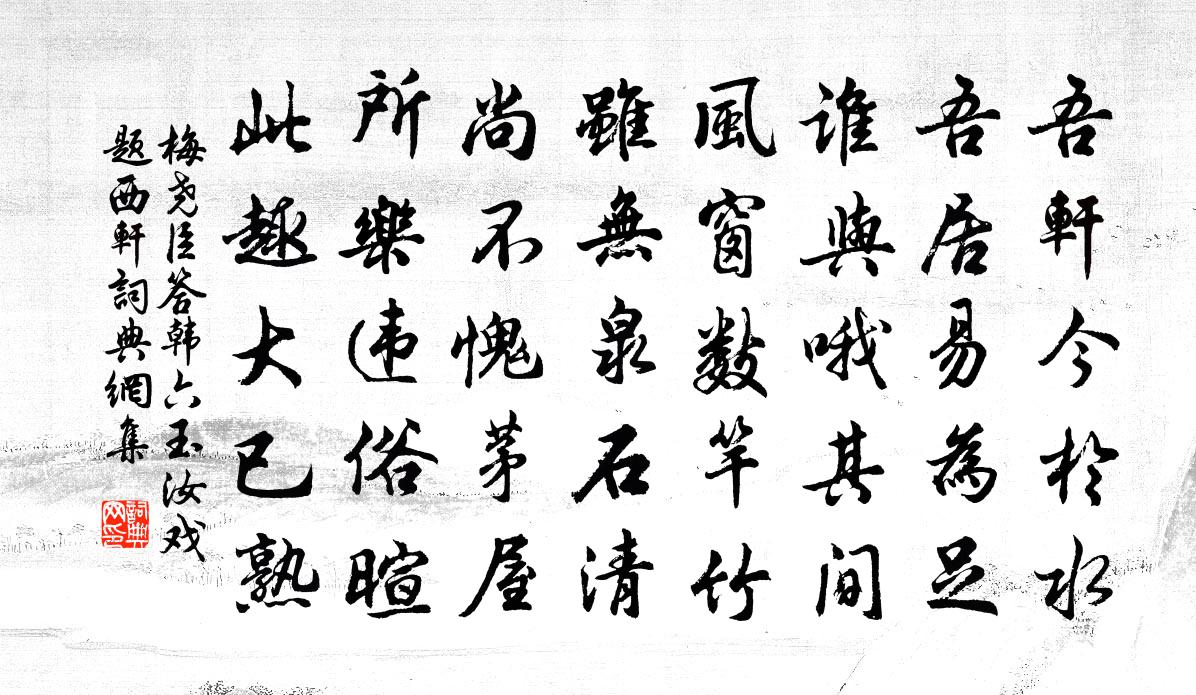 吾軒今於水
吾居易為足
誰與哦其間
風窗数竿竹
雖無泉石清
尚不愧茅屋
所樂违俗暄
此趣大已熟
梅尧臣答韩六玉汝戏
题西軒詞典網集
詞典
网印